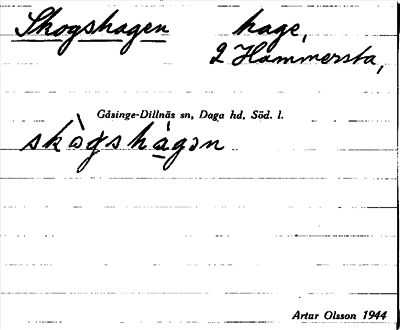 Skogshagen hage,
2 Hammersta,
Gåsinge-Dillnäs sn, Daga hd, Söd. l.
skògshàgən
Artur Olsson 1944